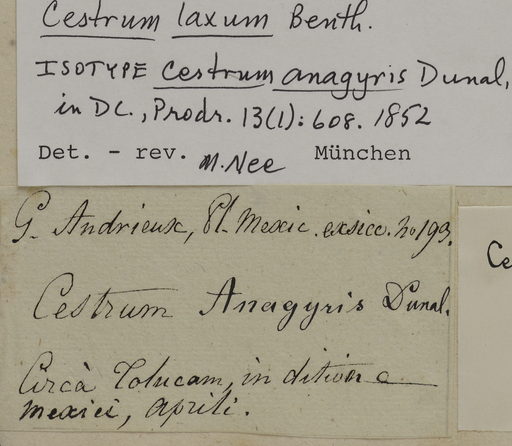 Cestrum laxum Benth.
ISOTYPE Cestrum anagyris Dunal,
in DC., Prodr. 13(1): 608. 1852
Det. - rev. M. Nee München
G. Andrieux, Pl. Mexic. exsicc. no 193.
Ce
Cestrum Anagyris Dunal.
Circà Tolucam, in ditione
mexici, aprili.